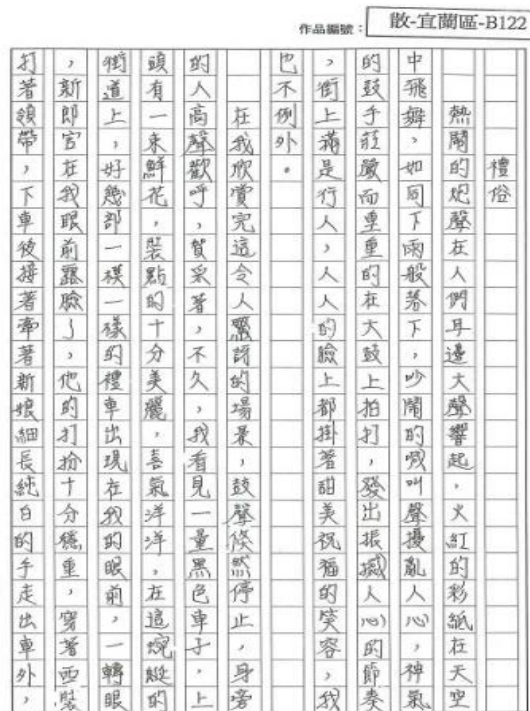 作品編號：散-宜蘭區-B122
禮俗
熱鬧的炮聲在人們耳邊大聲響起，火紅的彩紙在天空
中飛舞，如同下雨般落下，吵鬧的喊叫聲擾亂人心，神氣
的鼓手莊嚴而重重的在大鼓上拍打，發出振撼人心的節奏
，街上滿是行人，人人的臉上都掛著甜美祝福的笑容，我
也不例外。
在我欣賞完這令人驚訝的場景，鼓聲倏然停止，身旁
的人高聲歡呼，賀采著，不久，我看見一量黑色車子，上
頭有一束鮮花，裝點的十分美麗，喜氣洋洋，在這蜿蜒的
街道上，好幾部一模一樣的禮車出現在我的眼前，一轉眼
，新郎官，在我眼前露臉了，他的打扮十分穩重，穿著西裝
打著領帶，下車後接著牽著新娘細長純白的手走出車外，